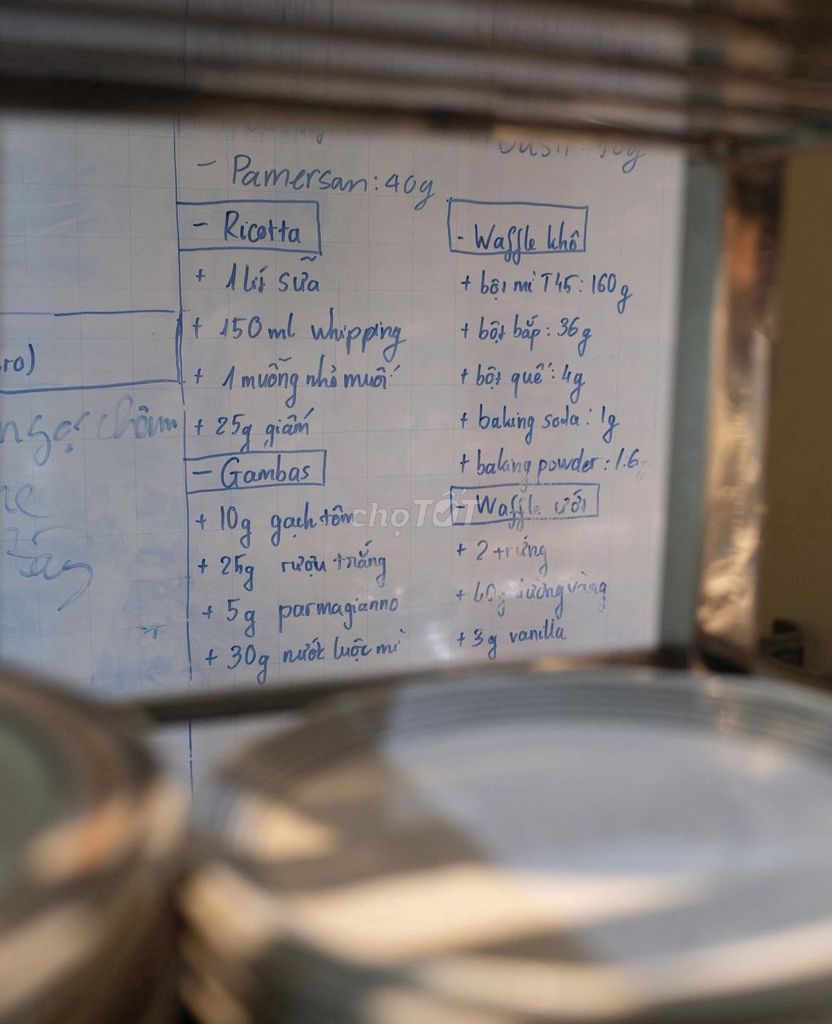 - Pamersan: 40g
- Ricotta
+ 1 lít sữa
+ 150ml whipping
+ 1 muỗng nhỏ muối
+ 25g giấm
- Gambas
+ 10g gạch tôm
+ 25g rượu trắng
+ 5g parmagianno
+ 30g nước luộc mì
- Waffle khô
+ bột mì T45: 160g
+ bột bắp: 36g
+ bột quế: 4g
+ baking soda: 1g
+ baking powder: 1.6
- Waffle ướt
+ 2 trứng
+ đường vàng
+ 3g vanilla
ro)
chợTỐT